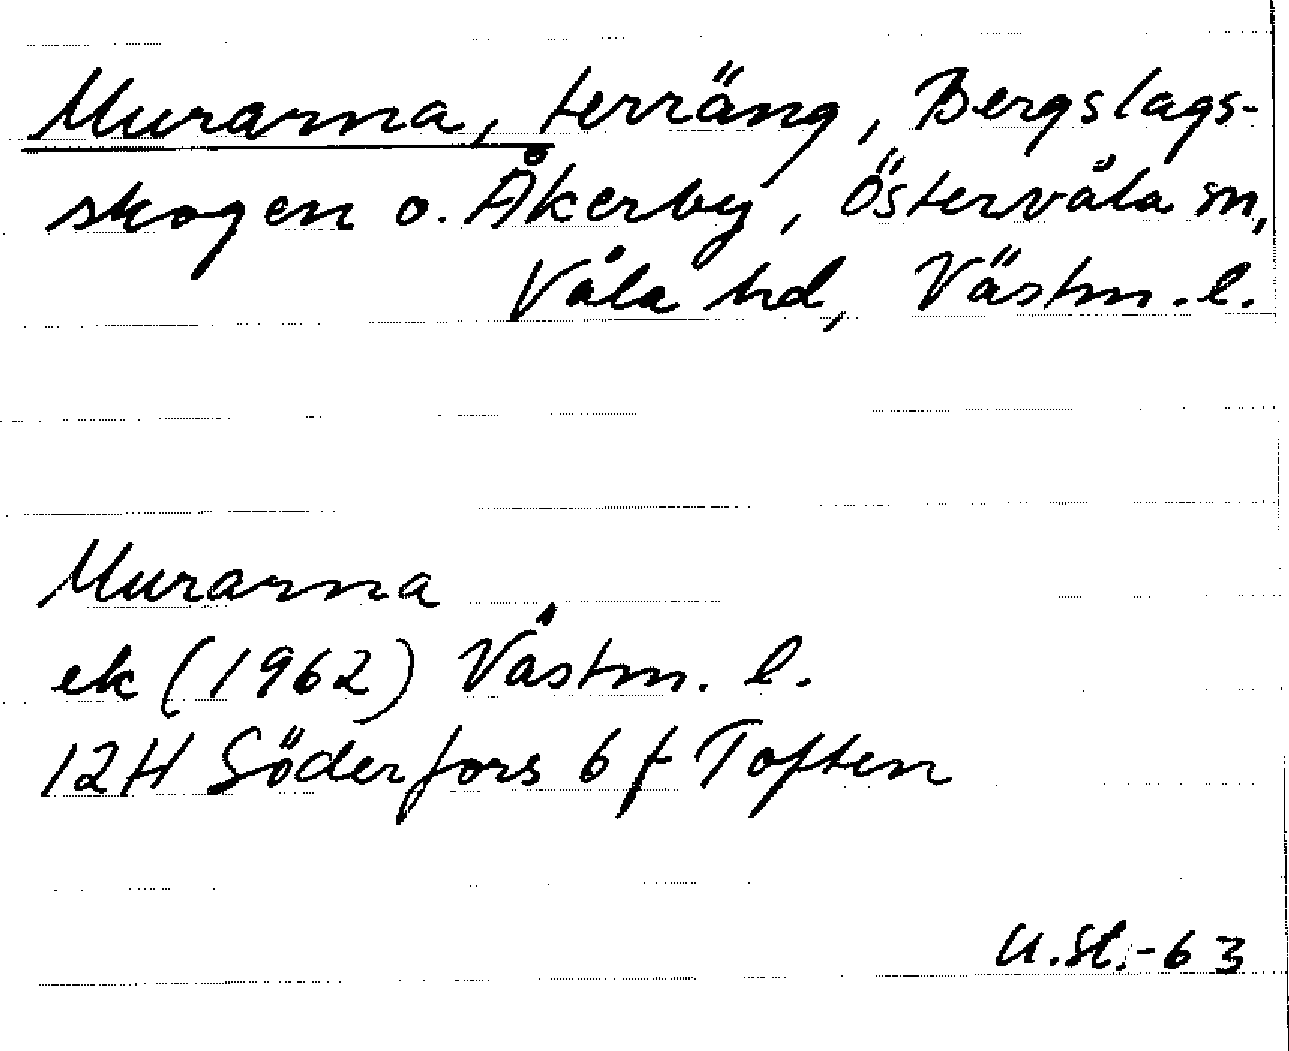 Murarna, terräng, Bergslags-
skogen o. Åkerby, Östervåla sn,
Våla hd, Västm. l.
Murarna
ek (1962) Västm. l.
12H Söderfors 6 f Toften
U.Sl.-63